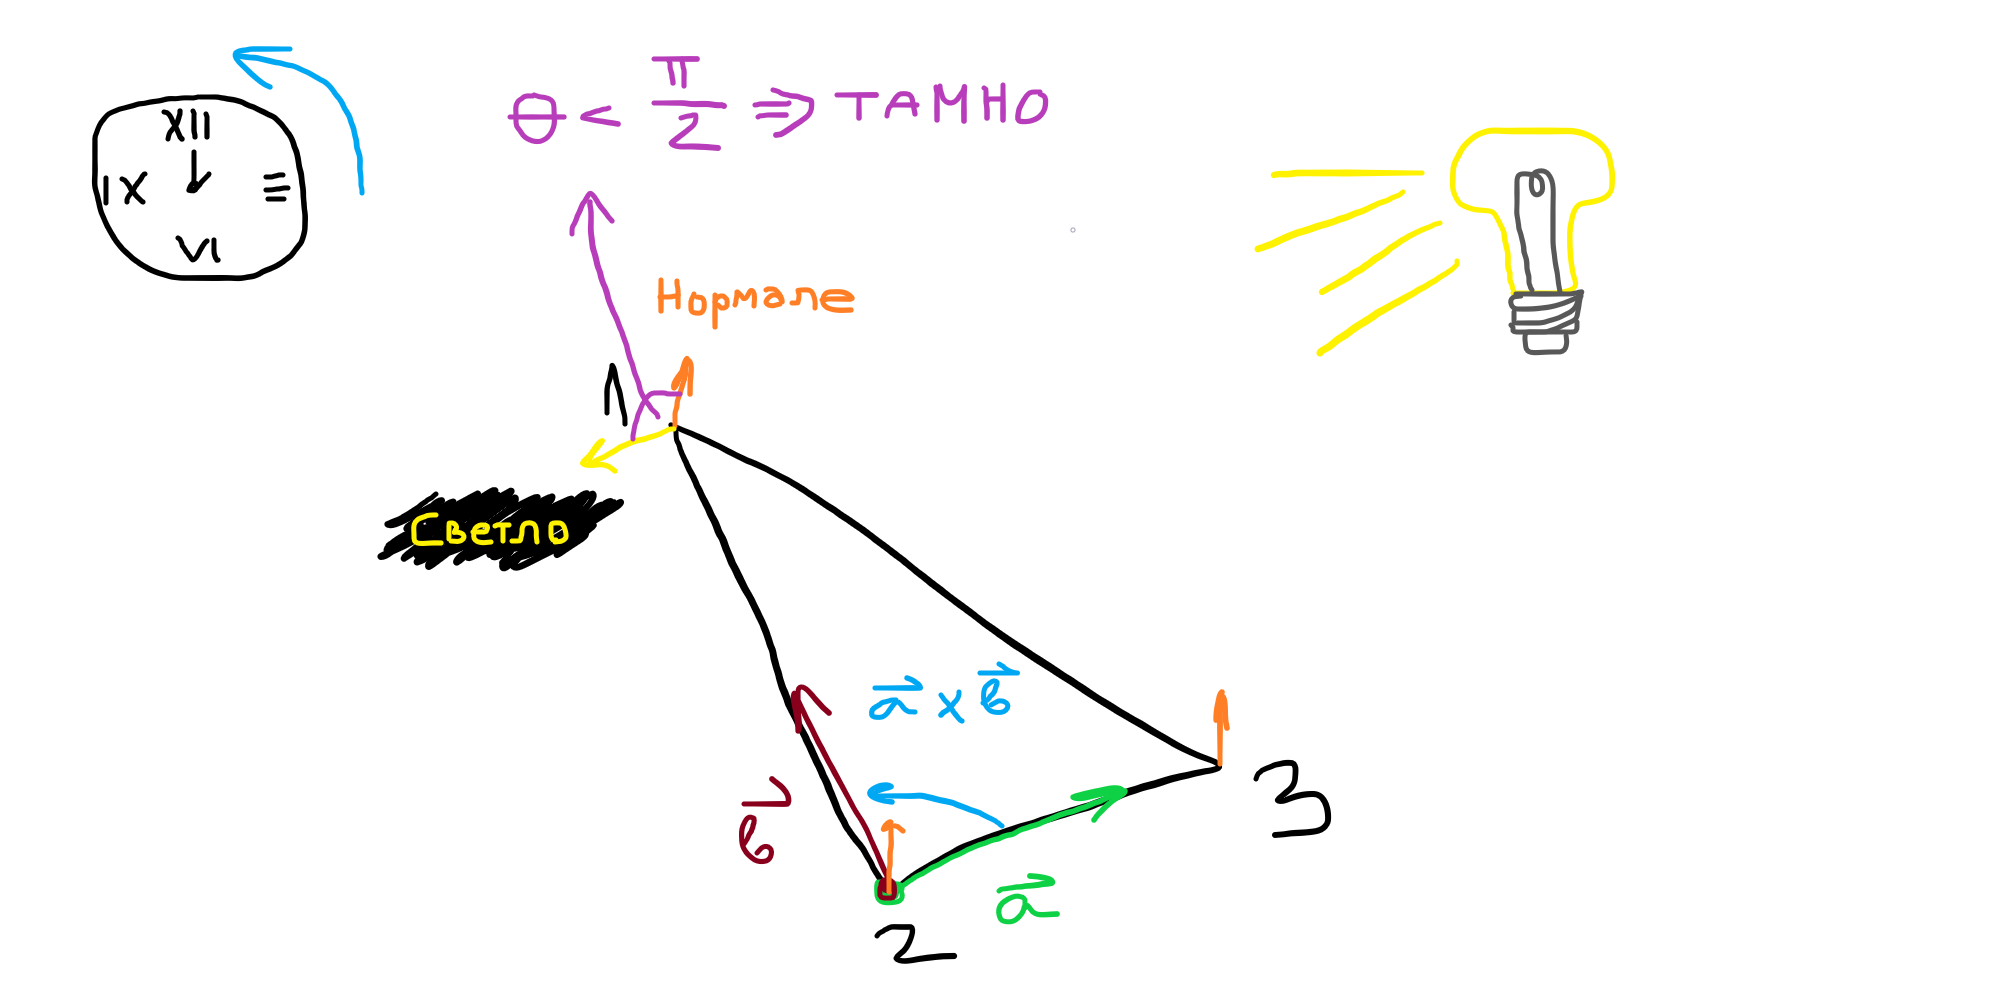 XII
IX III
VI
θ < π/2 ⇒ ТАМНО
Нормале
1
Светло
a⃗ × b⃗
b⃗
3
a⃗
2